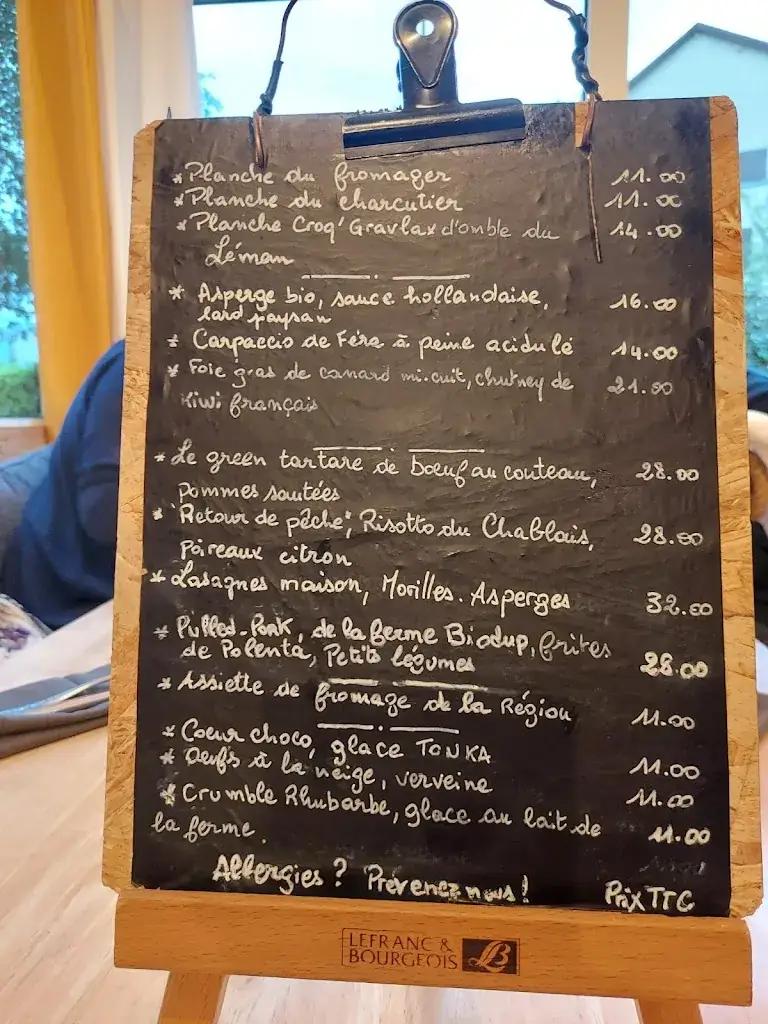 * Planche du fromager 11.00
* Planche du charcutier 11.00
* Planche Croq' Gravlax d'omble du 14.00
Léman
* Asperge bio, sauce hollandaise, 16.00
lard paysan
* Carpaccio de Féra à peine acidulé 14.00
* Foie gras de canard mi-cuit, chutney de 21.00
Kiwi français
* Le green tartare de bœuf au couteau, 28.00
pommes sautées
* "Retour de pêche", Risotto du Chablais, 28.00
poireaux citron
* Lasagnes maison, Morilles. Asperges 32.00
* Pulled-Pork, de la ferme Biodup, frites
de Polenta, Petits légumes 28.00
* Assiette de fromage de la Région 11.00
* Coeur choco, glace TONKA 11.00
* Oeufs à la neige, verveine 11.00
* Crumble Rhubarbe, glace au lait de 11.00
la ferme.
Allergies? Prévenez nous! Prix TTC
LEFRANC &
BOURGEOIS LB